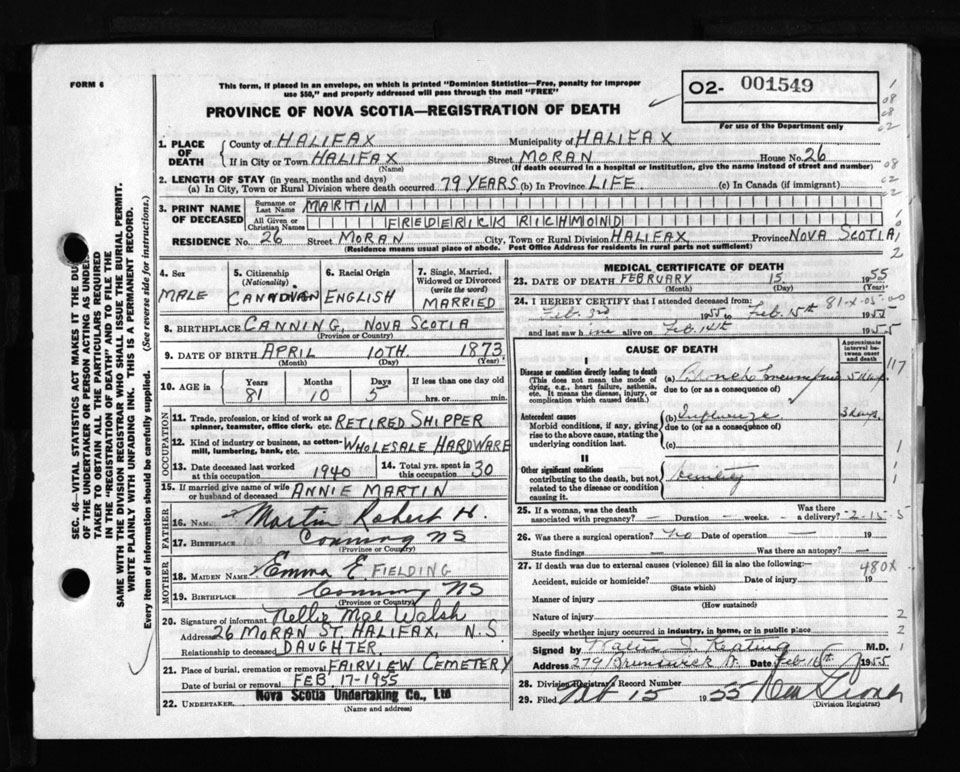 FORM 6
This form, if placed in an envelope, on which is printed "Dominion Statistics—Free, penalty for improper
use $50," and properly addressed will pass through the mail "FREE"
PROVINCE OF NOVA SCOTIA—REGISTRATION OF DEATH
O2- 001549
For use of the Department only
1. PLACE OF DEATH
County of HALIFAX Municipality of HALIFAX
If in City or Town HALIFAX Street MORAN House No. 26
(Name) (If death occurred in a hospital or institution, give the name instead of street and number)
2. LENGTH OF STAY (in years, months and days)
(a) In City, Town or Rural Division where death occurred 79 YEARS (b) In Province LIFE (c) In Canada (if immigrant)
3. PRINT NAME OF DECEASED
Surname or Last Name MARTIN
All Given or Christian Names FREDERICK RICHMOND
RESIDENCE No. 26 Street MORAN City, Town or Rural Division HALIFAX Province NOVA SCOTIA
(Residence means usual place of abode. Post Office Address for residents in rural parts not sufficient)
4. Sex MALE
5. Citizenship (Nationality) CANADIAN
6. Racial Origin ENGLISH
7. Single, Married, Widowed or Divorced (write the word) MARRIED
8. BIRTHPLACE CANNING, NOVA SCOTIA
(Province or Country)
9. DATE OF BIRTH APRIL 10TH. 1873
(Month) (Day) (Year)
10. AGE in Years 81 Months 10 Days 5 If less than one day old hrs. or min.
OCCUPATION
11. Trade, profession or kind of work as spinner, teamster, office clerk. etc. RETIRED SHIPPER
12. Kind of industry or business, as cotton-mill, lumbering, bank, etc. WHOLESALE HARDWARE
13. Date deceased last worked at this occupation 1940
14. Total yrs. spent in this occupation 30
15. If married give name of wife or husband of deceased ANNIE MARTIN
FATHER
16. NAME Martin Robert H.
17. BIRTHPLACE Canning NS
(Province or Country)
MOTHER
18. MAIDEN NAME Emma E. FIELDING
19. BIRTHPLACE Canning NS
(Province or Country)
20. Signature of informant Nellie Mae Walsh
Address 26 MORAN ST. HALIFAX, N.S.
Relationship to deceased DAUGHTER.
21. Place of burial, cremation or removal FAIRVIEW CEMETERY
Date of burial or removal FEB. 17-1955
22. UNDERTAKER Nova Scotia Undertaking Co., Ltd
(Name and address)
MEDICAL CERTIFICATE OF DEATH
23. DATE OF DEATH FEBRUARY 15 1955
(Month) (Day) (Year)
24. I HEREBY CERTIFY that I attended deceased from 81-X-05-00
Feb. 3rd 1955 to Feb. 15th 1955
and last saw him alive on Feb. 14th 1955
CAUSE OF DEATH
Approximate interval between onset and death
I
Disease or condition directly leading to death
(This does not mean the mode of dying, e.g., heart failure, asthenia, etc. It means the disease, injury, or complication which caused death.)
(a) Broncho Pneumonia 5 days
due to (or as a consequence of)
Antecedent causes
Morbid conditions, if any, giving rise to the above cause, stating the underlying condition last.
(b) Influenza 3 days
due to (or as a consequence of)
(c)
II
Other significant conditions
contributing to the death, but not related to the disease or condition causing it.
Senility
25. If a woman, was the death associated with pregnancy? — Duration — weeks. — Was there a delivery? -2-15-5
26. Was there a surgical operation? No Date of operation — 19
State findings — Was there an autopsy? —
27. If death was due to external causes (violence) fill in also the following: 480X
Accident, suicide or homicide? Date of injury 19
(State which)
Manner of injury
(How sustained)
Nature of injury
Specify whether injury occurred in industry, in home, or in public place
Signed by Keating M.D.
Address 279 Brunswick St. Date Feb 16th 1955
28. Division Registrar's Record Number
29. Filed Feb 15 1955
(Division Registrar)
SEC. 46—VITAL STATISTICS ACT MAKES IT THE DUTY
OF THE UNDERTAKER OR PERSON ACTING AS UNDERTAKER
TO OBTAIN ALL THE PARTICULARS REQUIRED
IN THE "REGISTRATION OF DEATH" AND TO FILE THE
SAME WITH THE DIVISION REGISTRAR WHO SHALL ISSUE THE BURIAL PERMIT.
WRITE PLAINLY WITH UNFADING INK. THIS IS A PERMANENT RECORD.
Every item of information should be carefully supplied. (See reverse side for instructions.)